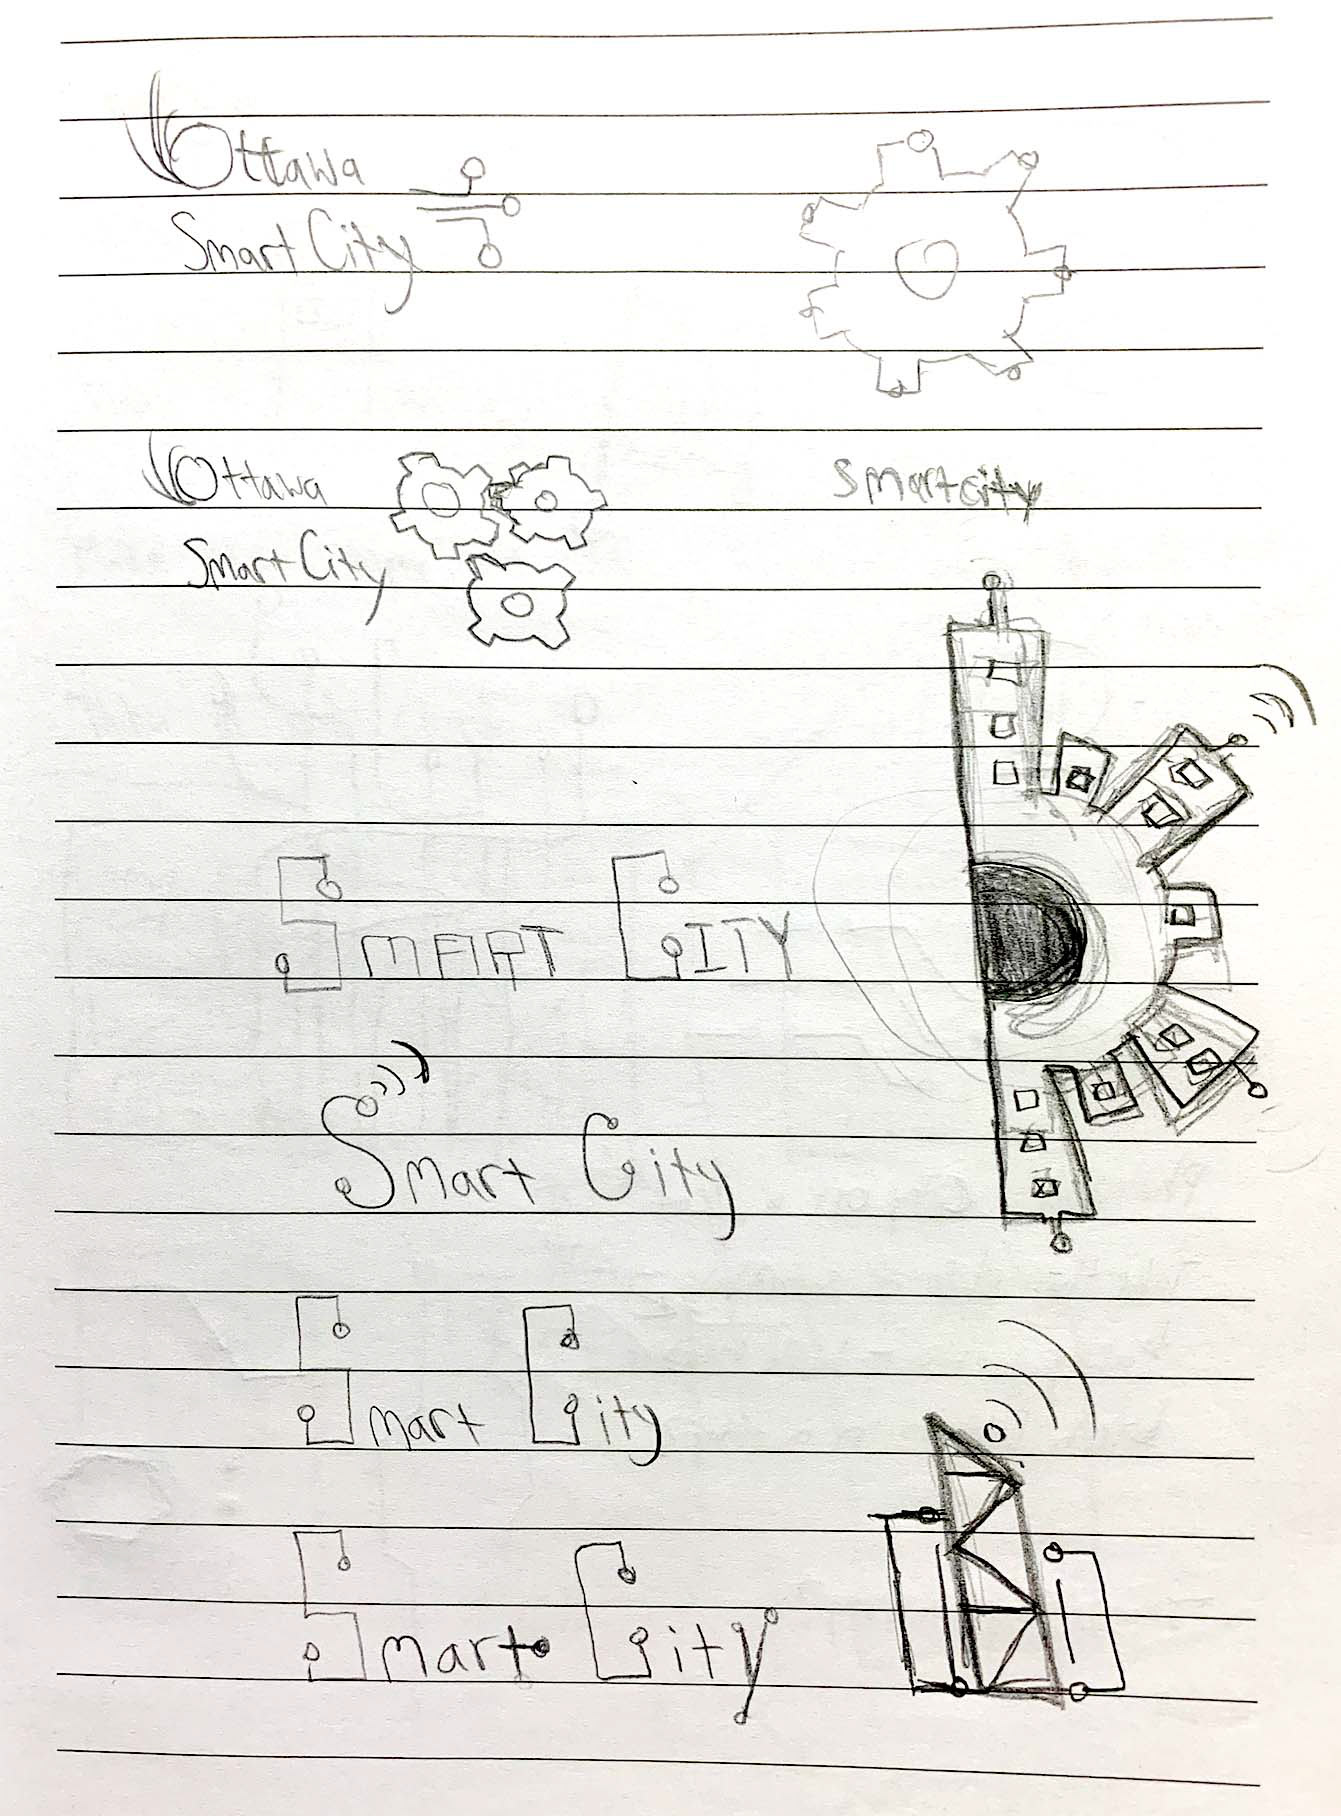 Ottawa
Smart City
Ottawa
Smart City
Smartcity
SMART CITY
Smart City
Smart City
Smart City